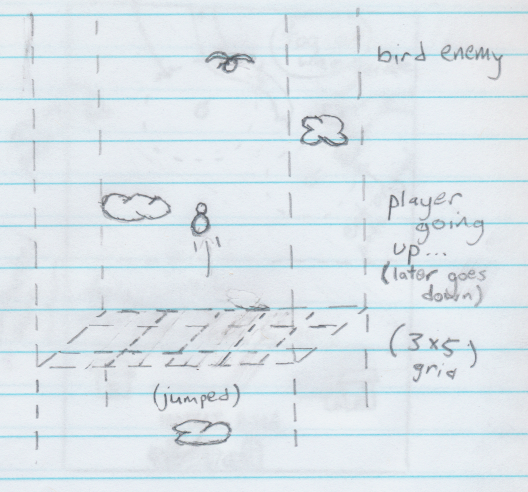 bird enemy
player
going
up...
(later goes
down)
(3x5)
grid
(jumped)